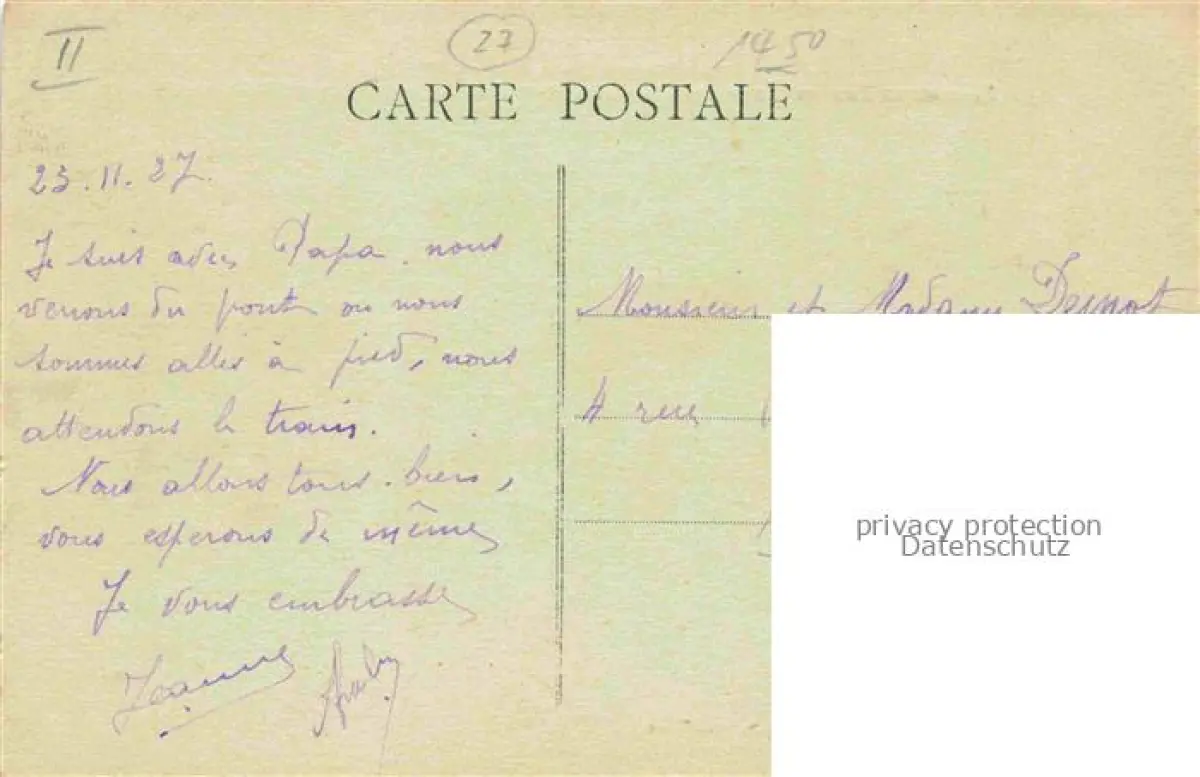 II
27
1450
CARTE POSTALE
23.11.27.
Je suis avec Papa. nous
venons du pont ou nous
sommes allés à pied, nous
attendons le train.
Nous allons tous bien,
vous esperons de même
Je vous embrasse
Jeanne
Monsieur et Madame
4 rue
privacy protection
Datenschutz